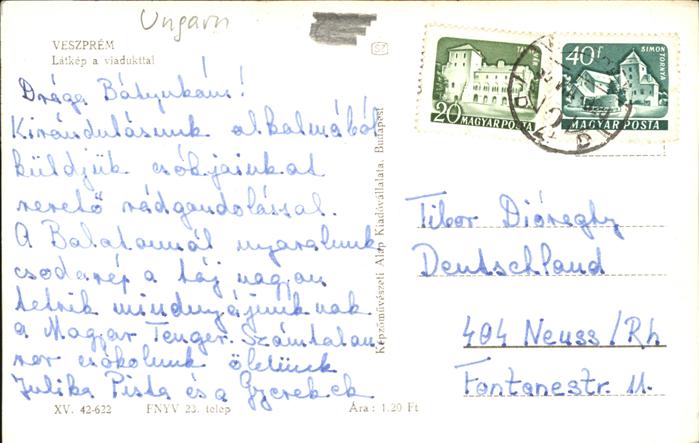 Ungarn
VESZPRÉM
Látkép a viadukttal
Drága Bátyunkáns!
Kirándulásunk alkalmából
küldjük csókjainkat
szerető rádgondolással.
A Balatonnál nyaralunk
csodaszép a táj nagyon
tetszik mindnyájunknak
a Magyar Tenger. Számtalan
szor csókolunk ölelünk
Julika Pista és a Gyerekek
XV. 42-622 FNYV 23. telep Ára: 1.20 Ft
Képzőművészeti Alap Kiadóvállalata, Budapest
20 MAGYAR POSTA
40f SIMON TORNYA
MAGYAR POSTA
Tibor Dióreghy
Deutschland
404 Neuss/Rh
Fontanestr 11.